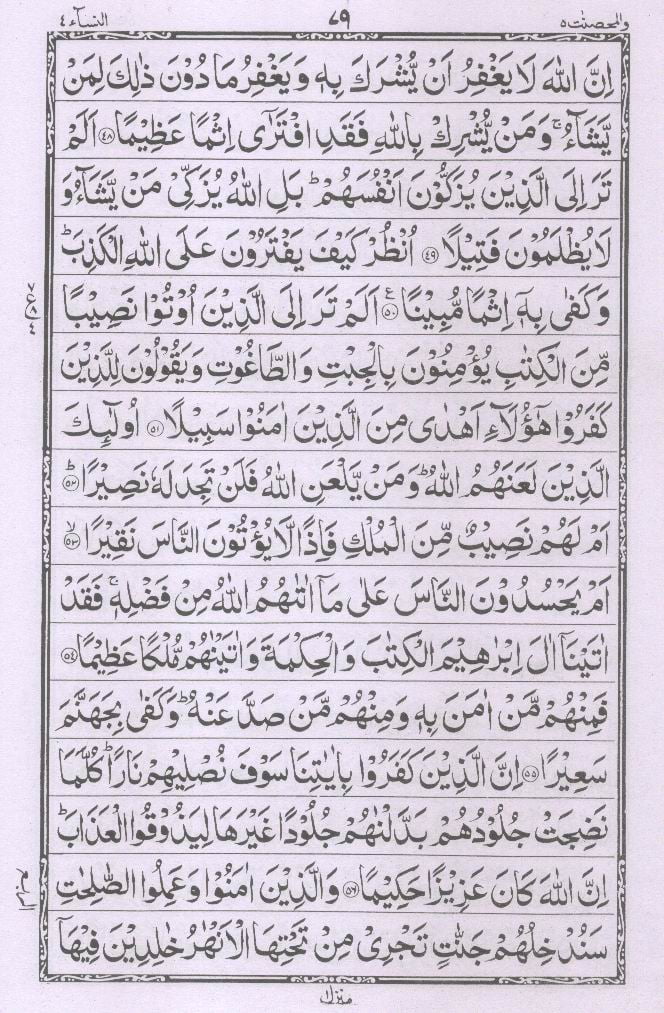 والمحصنٰت ٥ ٧٩ النسآء ٤
اِنَّ اللّٰهَ لَا يَغْفِرُ اَنْ يُّشْرَكَ بِهٖ وَيَغْفِرُ مَا دُوْنَ ذٰلِكَ لِمَنْ
يَّشَآءُ ۚ وَمَنْ يُّشْرِكْ بِاللّٰهِ فَقَدِ افْتَرٰٓى اِثْمًا عَظِيْمًا ﴿٤٨﴾ اَلَمْ
تَرَ اِلَى الَّذِيْنَ يُزَكُّوْنَ اَنْفُسَهُمْ ؕ بَلِ اللّٰهُ يُزَكِّيْ مَنْ يَّشَآءُ وَ
لَا يُظْلَمُوْنَ فَتِيْلًا ﴿٤٩﴾ اُنْظُرْ كَيْفَ يَفْتَرُوْنَ عَلَى اللّٰهِ الْكَذِبَ ؕ
وَكَفٰى بِهٖٓ اِثْمًا مُّبِيْنًا ﴿٥٠﴾ ع اَلَمْ تَرَ اِلَى الَّذِيْنَ اُوْتُوْا نَصِيْبًا
مِّنَ الْكِتٰبِ يُؤْمِنُوْنَ بِالْجِبْتِ وَالطَّاغُوْتِ وَيَقُوْلُوْنَ لِلَّذِيْنَ
كَفَرُوْا هٰٓؤُلَآءِ اَهْدٰى مِنَ الَّذِيْنَ اٰمَنُوْا سَبِيْلًا ﴿٥١﴾ اُولٰٓئِكَ
الَّذِيْنَ لَعَنَهُمُ اللّٰهُ ؕ وَمَنْ يَّلْعَنِ اللّٰهُ فَلَنْ تَجِدَ لَهٗ نَصِيْرًا ﴿٥٢﴾ ؕ
اَمْ لَهُمْ نَصِيْبٌ مِّنَ الْمُلْكِ فَاِذًا لَّا يُؤْتُوْنَ النَّاسَ نَقِيْرًا ﴿٥٣﴾ ۙ
اَمْ يَحْسُدُوْنَ النَّاسَ عَلٰى مَآ اٰتٰىهُمُ اللّٰهُ مِنْ فَضْلِهٖ ۚ فَقَدْ
اٰتَيْنَآ اٰلَ اِبْرٰهِيْمَ الْكِتٰبَ وَالْحِكْمَةَ وَاٰتَيْنٰهُمْ مُّلْكًا عَظِيْمًا ﴿٥٤﴾
فَمِنْهُمْ مَّنْ اٰمَنَ بِهٖ وَمِنْهُمْ مَّنْ صَدَّ عَنْهُ ؕ وَكَفٰى بِجَهَنَّمَ
سَعِيْرًا ﴿٥٥﴾ اِنَّ الَّذِيْنَ كَفَرُوْا بِاٰيٰتِنَا سَوْفَ نُصْلِيْهِمْ نَارًا ؕ كُلَّمَا
نَضِجَتْ جُلُوْدُهُمْ بَدَّلْنٰهُمْ جُلُوْدًا غَيْرَهَا لِيَذُوْقُوا الْعَذَابَ ؕ
اِنَّ اللّٰهَ كَانَ عَزِيْزًا حَكِيْمًا ﴿٥٦﴾ وَالَّذِيْنَ اٰمَنُوْا وَعَمِلُوا الصّٰلِحٰتِ
سَنُدْخِلُهُمْ جَنّٰتٍ تَجْرِيْ مِنْ تَحْتِهَا الْاَنْهٰرُ خٰلِدِيْنَ فِيْهَآ
منزل ١